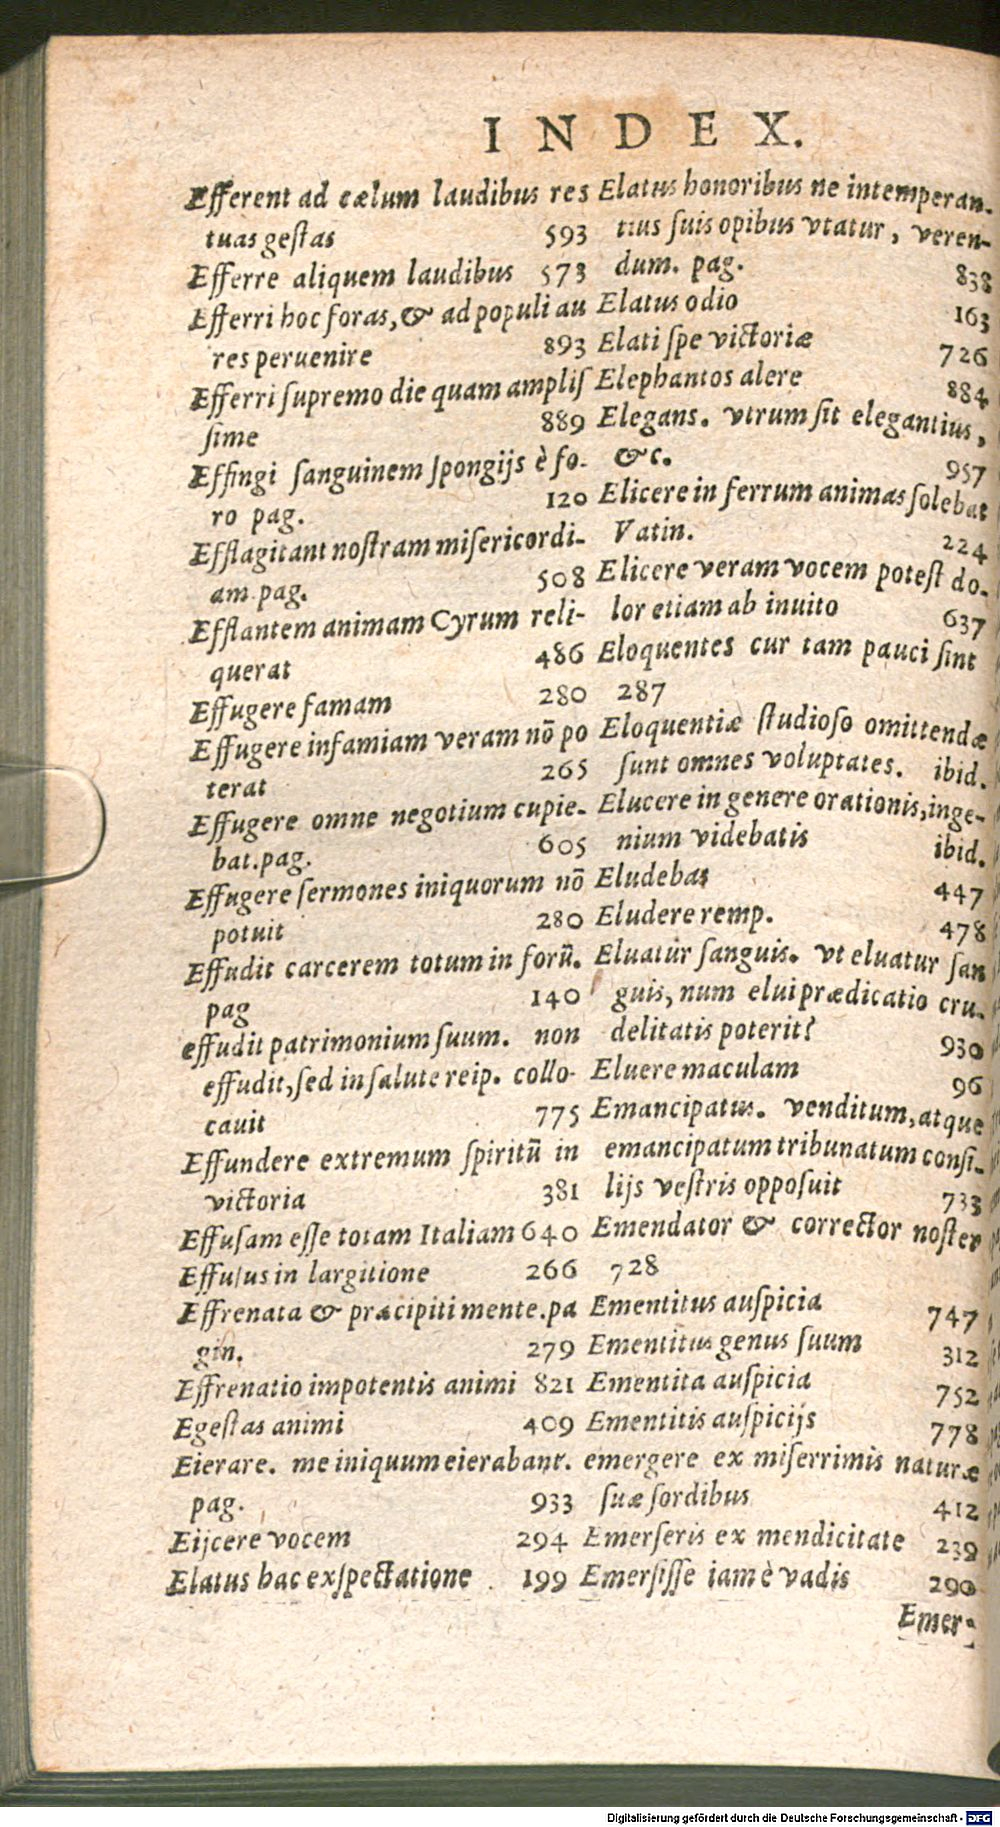 INDEX.
Efferent ad cælum laudibus res
tuas gestas 593
Efferre aliquem laudibus 573
Efferri hoc foras, & ad populi au
res peruenire 893
Efferri supremo die quam amplis
sime 889
Effingi sanguinem spongijs è fo-
ro pag. 120
Efflagitant nostram misericordi-
am pag. 508
Efflantem animam Cyrum reli-
querat 486
Effugere famam 280
Effugere infamiam veram nō po
terat 265
Effugere omne negotium cupie-
bat.pag. 605
Effugere sermones iniquorum nō
potuit 280
Effudit carcerem totum in forū.
pag 140
effudit patrimonium suum. non
effudit, sed in salute reip. collo-
cauit 775
Effundere extremum spiritū in
victoria 381
Effusam esse totam Italiam 640
Effusus in largitione 266
Effrenata & præcipiti mente.pa
gin. 279
Effrenatio impotentis animi 821
Egestas animi 409
Eierare. me iniquum eierabant.
pag. 933
Eijcere vocem 294
Elatus hac exspectatione 199
Elatus honoribus ne intemperan-
tius suis opibus vtatur, veren-
dum. pag. 838
Elatus odio 163
Elati spe victoriæ 726
Elephantos alere 884
Elegans. vtrum sit elegantius,
&c. 957
Elicere in ferrum animas solebat
Vatin. 224
Elicere veram vocem potest do-
lor etiam ab inuito 637
Eloquentes cur tam pauci sint
287
Eloquentiæ studioso omittendæ
sunt omnes voluptates. ibid.
Elucere in genere orationis, inge-
nium videbatis ibid.
Eludebas 447
Eludere remp. 478
Eluatur sanguis. vt eluatur san
guis, num elui prædicatio cru-
delitatis poterit? 930
Eluere maculam 96
Emancipatus. venditum, atque
emancipatum tribunatum consi-
lijs vestris opposuit 733
Emendator & corrector noster
728
Ementitus auspicia 747
Ementitus genus suum 312
Ementita auspicia 752
Ementitis auspicijs 778
emergere ex miserrimis naturæ
suæ sordibus 412
Emerseris ex mendicitate 239
Emersisse iam è vadis 290
Emer-
Digitalisierung gefördert durch die Deutsche Forschungsgemeinschaft - DFG